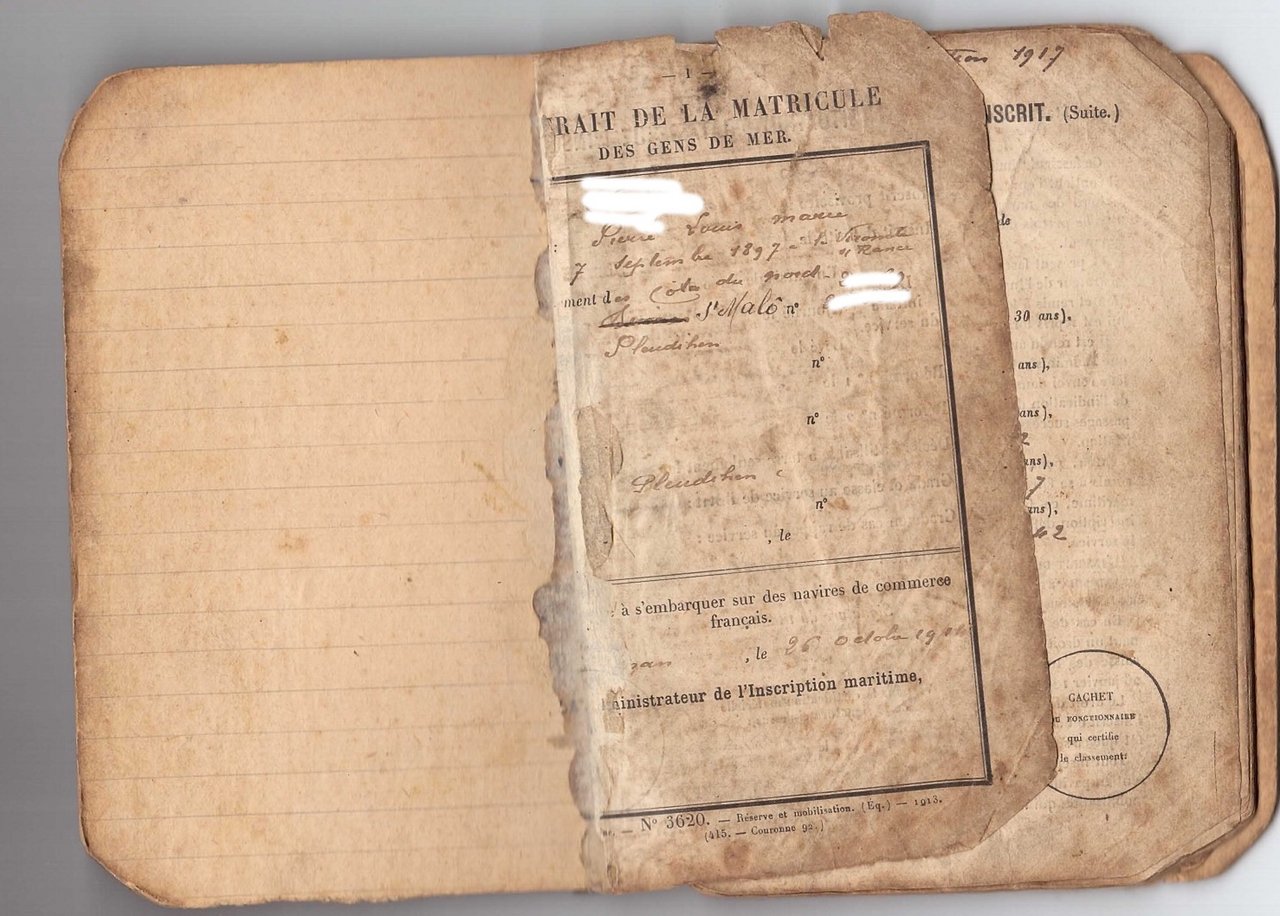 — 1 —
RAIT DE LA MATRICULE
DES GENS DE MER.
Pierre Louis marie
7 septembre 1897 à St Vicomte
s/ Rance
ment des Côtes du nord
St Malô nº
Pleudihen
nº
nº
Pleudihen
nº
, le
à s'embarquer sur des navires de commerce
français.
, le 26 octobre
ministrateur de l'Inscription maritime,
— Nº 3620. — Réserve et mobilisation. (Éq.) — 1913.
(415. — Couronne 92.)
1917
NSCRIT. (Suite.)
de
30 ans),
ans),
ans),
2
ans),
7
ans),
42
CACHET
DU FONCTIONNAIRE
qui certifie
le classement